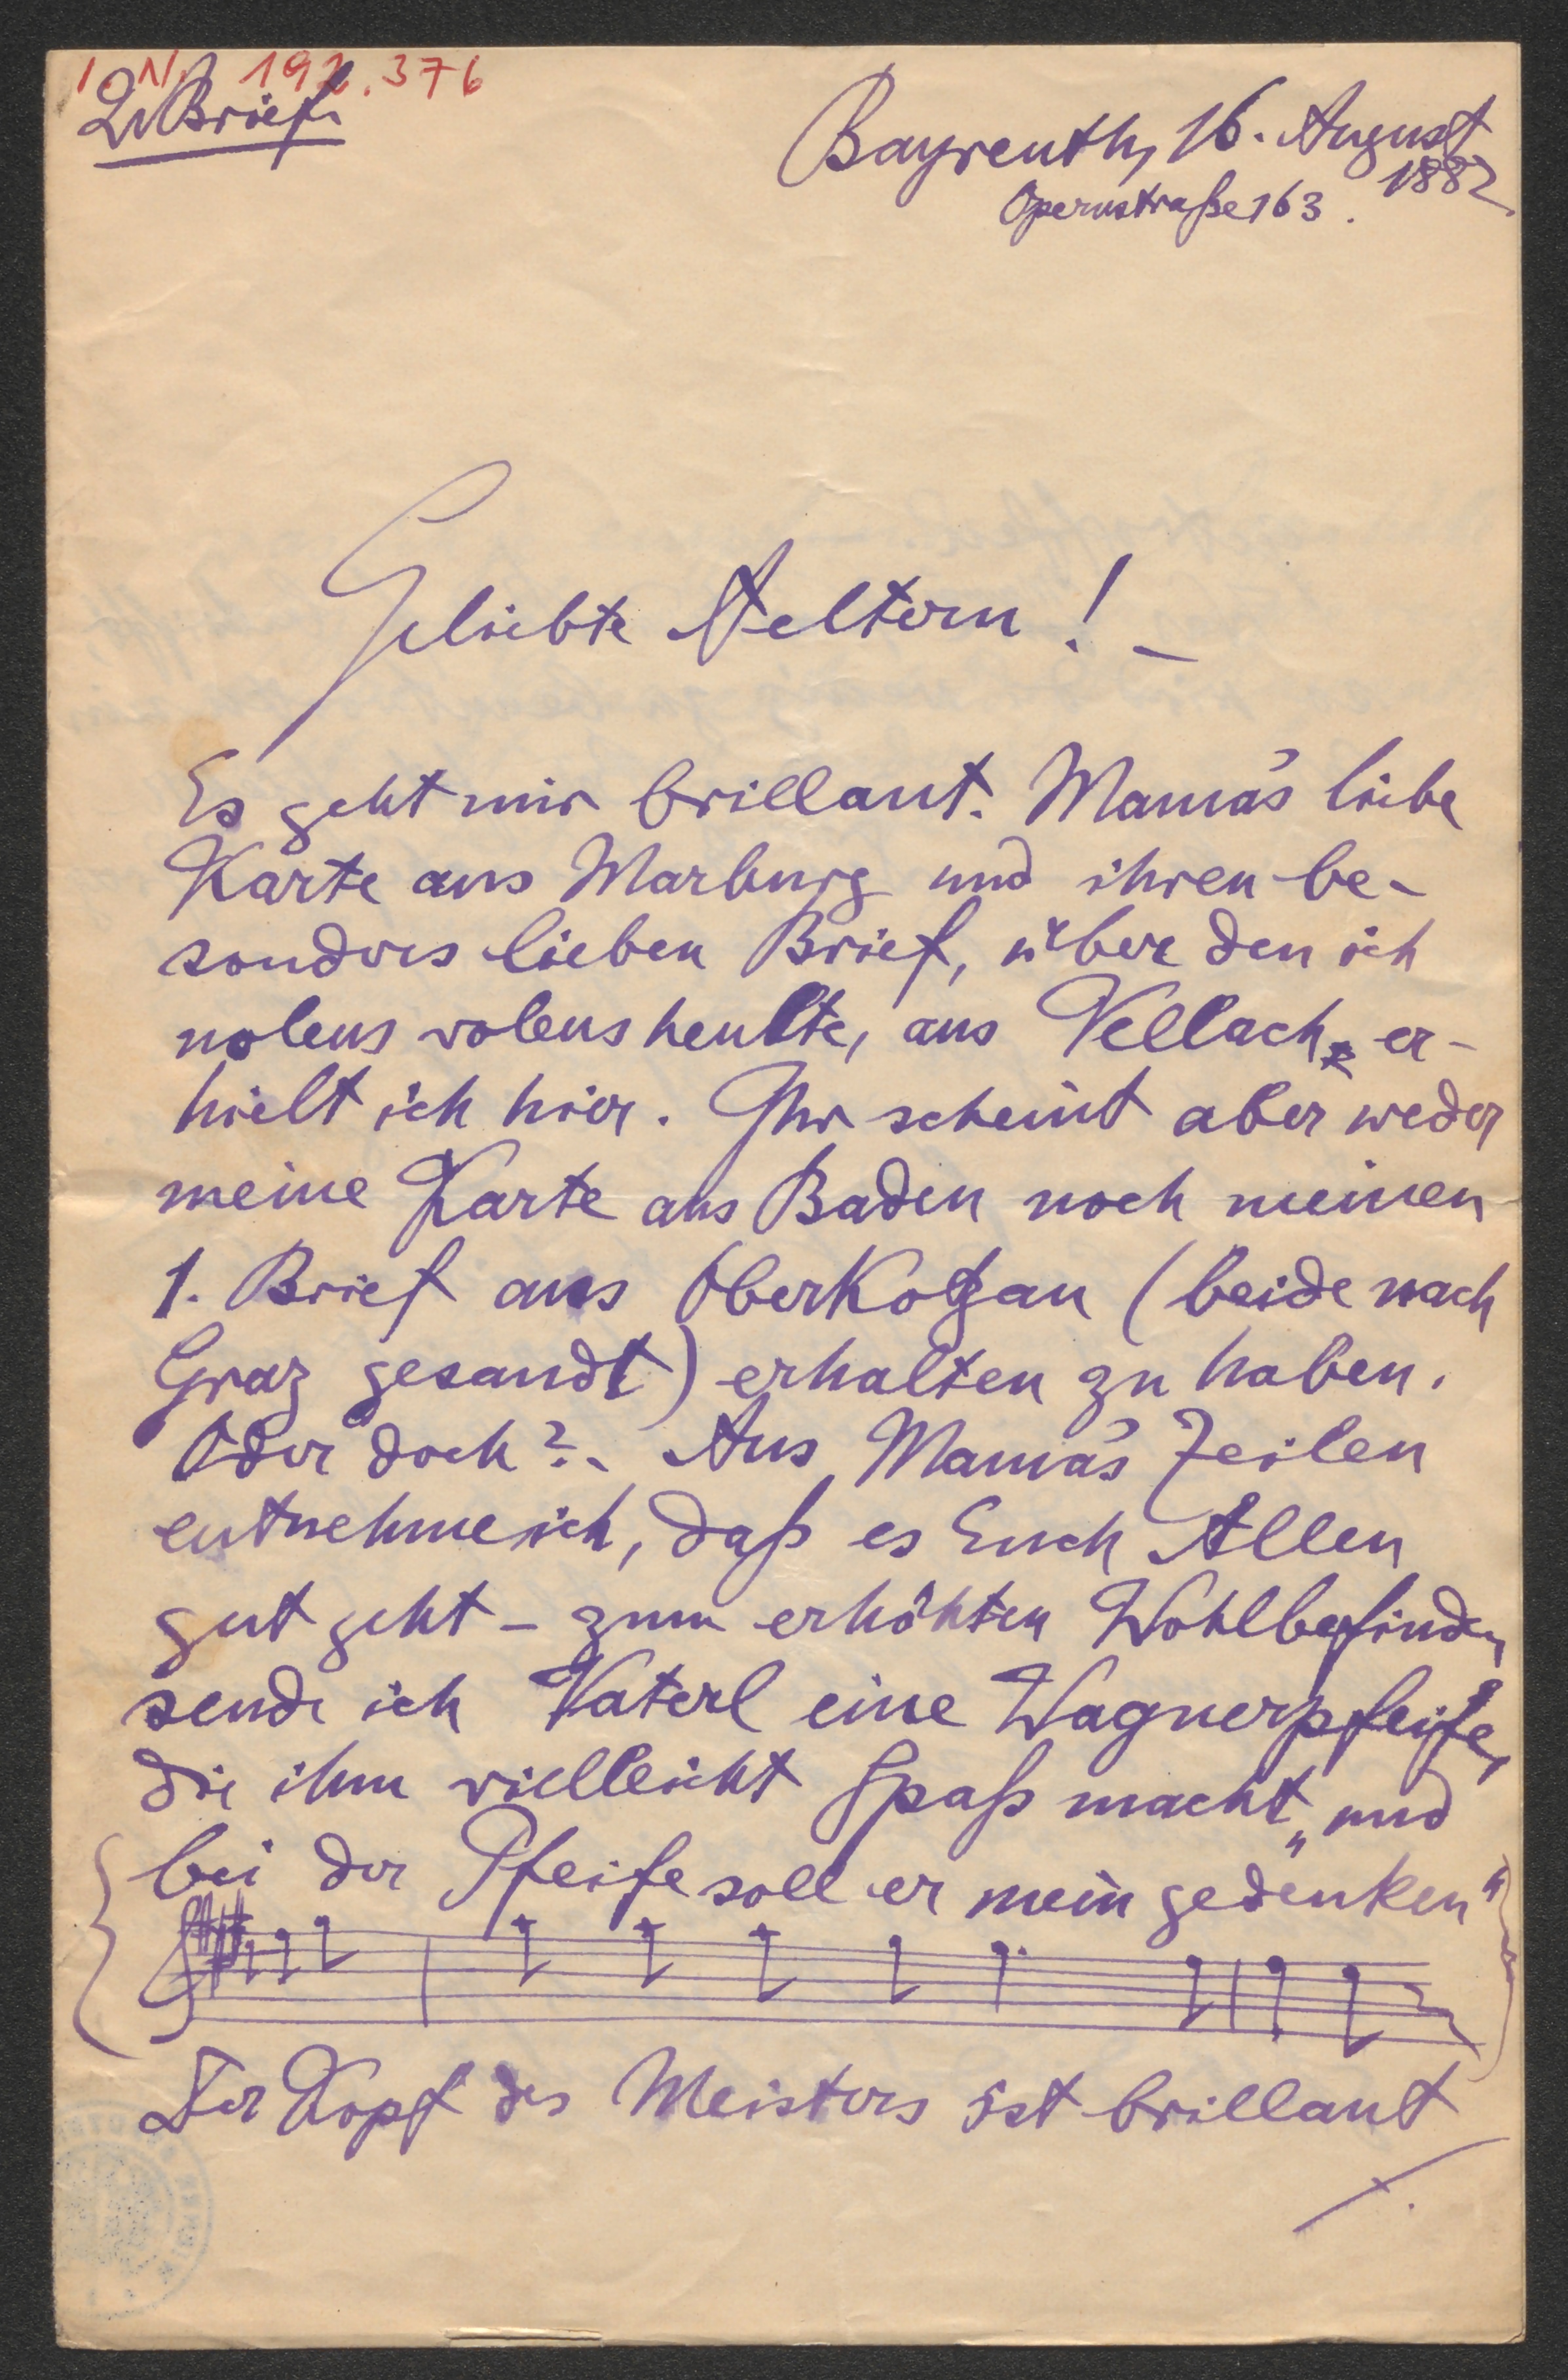 I. N. 192.376
2. Brief.
Bayreuth, 16. August
1882
Opernstraße 163.
Geliebte Aeltern! –
Es geht mir brillant. Mama's liebe
Karte aus Marburg und ihren be-
sonders lieben Brief, über den ich
nolens volens heulte, aus Vellach, er-
hielt ich hier. Ihr scheint aber weder
meine Karte aus Baden noch meinen
1. Brief aus Oberkotzau (beide nach
Graz gesandt) erhalten zu haben.
Oder doch? – Aus Mama's Zeilen
entnehme ich, daß es Euch Allen
gut geht – zum erhöhten Wohlbefinden
sende ich Vaterl eine Wagnerpfeife,
die ihm vielleicht Spaß macht „und
bei der Pfeife soll er mein gedenken"
Der Kopf des Meisters ist brillant